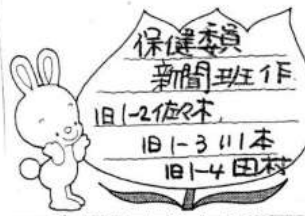 保健委員
新聞班作
旧1-2佐々木
旧1-3川本
旧1-4田村